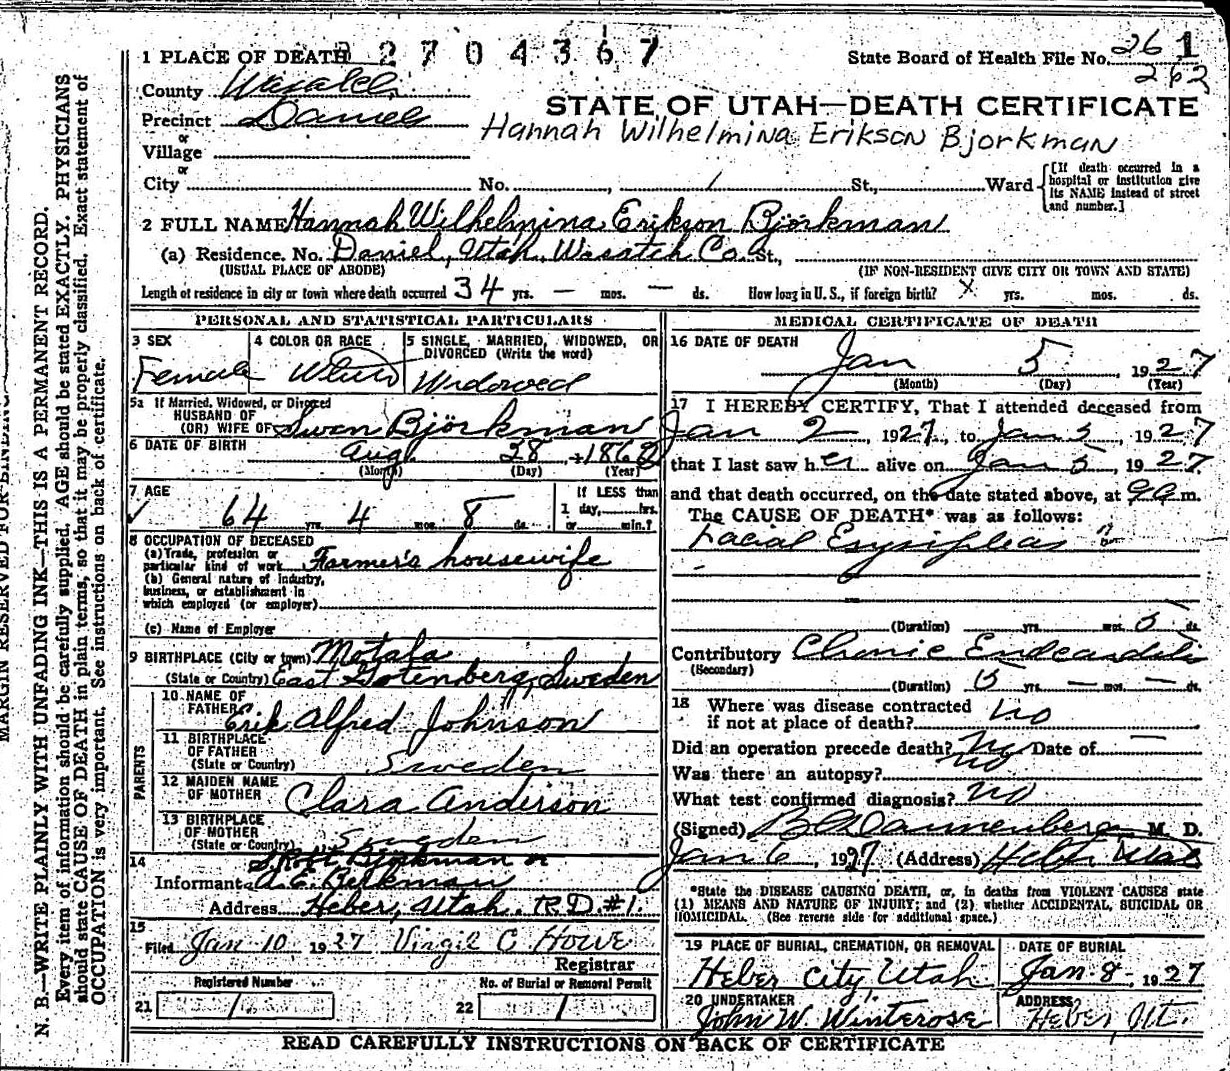 1 PLACE OF DEATH 2704367
State Board of Health File No. 26 1
262
County Wasatch
STATE OF UTAH—DEATH CERTIFICATE
Precinct Daniel
Hannah Wilhelmina Erikson Bjorkman
or
Village
or
City No. , St., Ward
[If death occurred in a hospital or institution give its NAME instead of street and number.]
2 FULL NAME Hannah Wilhelmina Erikson Björkman
(a) Residence. No. Daniel, Utah, Wasatch Co. St.,
(USUAL PLACE OF ABODE) (IF NON-RESIDENT GIVE CITY OR TOWN AND STATE)
Length of residence in city or town where death occurred 34 yrs. — mos. — ds. How long in U. S., if foreign birth? X yrs. mos. ds.
PERSONAL AND STATISTICAL PARTICULARS
3 SEX 4 COLOR OR RACE 5 SINGLE, MARRIED, WIDOWED, OR
DIVORCED (Write the word)
Female White Widowed
5a If Married, Widowed, or Divorced
HUSBAND OF
(OR) WIFE OF Swen Björkman
6 DATE OF BIRTH Aug 28 1862
(Month) (Day) (Year)
7 AGE If LESS than
64 yrs. 4 mos. 8 ds. 1 day, hrs.
or min.?
8 OCCUPATION OF DECEASED
(a) Trade, profession or
particular kind of work Farmer's housewife
(b) General nature of industry,
business, or establishment in
which employed (or employer)
(c) Name of Employer
9 BIRTHPLACE (City or town) Motala
(State or Country) East Gotenberg, Sweden
PARENTS
10 NAME OF
FATHER Erik Alfred Johnson
11 BIRTHPLACE
OF FATHER
(State or Country) Sweden
12 MAIDEN NAME
OF MOTHER Clara Anderson
13 BIRTHPLACE
OF MOTHER
(State or Country) Sweden
14 Robt Bjorkman or
Informant A. E. Bjorkman
Address Heber, Utah. R.D. #1.
15
Filed Jan 10 1927 Virgil C Howe
Registrar
Registered Number No. of Burial or Removal Permit
21 1 22 1
MEDICAL CERTIFICATE OF DEATH
16 DATE OF DEATH
Jan 5 1927
(Month) (Day) (Year)
17 I HEREBY CERTIFY, That I attended deceased from
Jan 2, 1927, to Jan 5, 1927
that I last saw her alive on Jan 5, 1927
and that death occurred, on the date stated above, at 9 a m.
The CAUSE OF DEATH* was as follows:
Facial Erysipleas
(Duration) yrs. mos. 5 ds.
Contributory Chronic Endcarditis
(Secondary)
(Duration) 15 yrs. — mos. — ds.
18 Where was disease contracted
if not at place of death? no
Did an operation precede death? No Date of —
Was there an autopsy? no
What test confirmed diagnosis? no
(Signed) Dannenberg M. D.
Jan 6, 1927 (Address) Heber Utah
*State the DISEASE CAUSING DEATH, or, in deaths from VIOLENT CAUSES state
(1) MEANS AND NATURE OF INJURY; and (2) whether ACCIDENTAL, SUICIDAL OR
HOMICIDAL. (See reverse side for additional space.)
19 PLACE OF BURIAL, CREMATION, OR REMOVAL DATE OF BURIAL
Heber City, Utah Jan. 8-, 1927
20 UNDERTAKER ADDRESS
John W. Winterose Heber, Ut.
READ CAREFULLY INSTRUCTIONS ON BACK OF CERTIFICATE
MARGIN RESERVED FOR BINDING
N. B.—WRITE PLAINLY WITH UNFADING INK—THIS IS A PERMANENT RECORD.
Every item of information should be carefully supplied. AGE should be stated EXACTLY. PHYSICIANS
should state CAUSE OF DEATH in plain terms, so that it may be properly classified. Exact statement of
OCCUPATION is very important. See instructions on back of certificate.